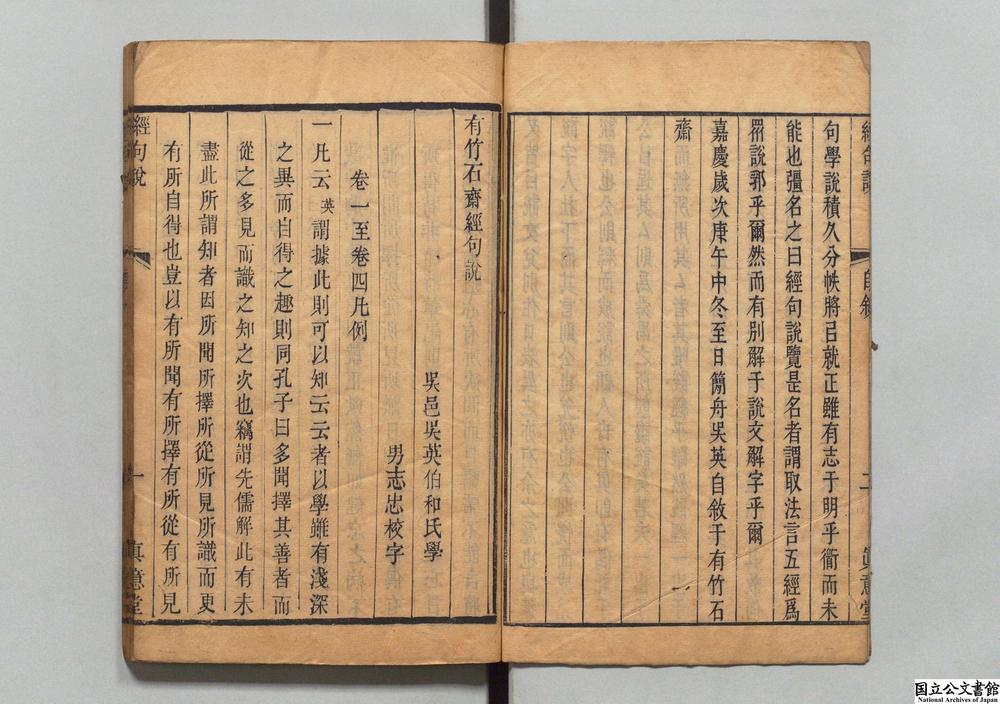 句學說積久分帙將㠯就正雖有志于明乎衢而未
能也彊名之曰經句說覽是名者謂取法言五經爲
眾說郛乎爾然而有別解于說文解字乎爾
嘉慶歲次庚午中冬至日簡舟吳英自敘于有竹石
齋
經句說
自敘
二
眞意堂
有竹石齋經句說
吳邑吳英伯和氏學
男志忠校字
卷一至卷四凡例
一凡云英謂據此則可以知云云者以學雖有淺深
之異而自得之趣則同孔子曰多聞擇其善者而
從之多見而識之知之次也竊謂先儒解此有未
盡此所謂知者因所聞所擇所從所見所識而更
有所自得也豈以有所聞有所擇有所從有所見
經句說
一
眞意堂
国立公文書館
National Archives of Japan